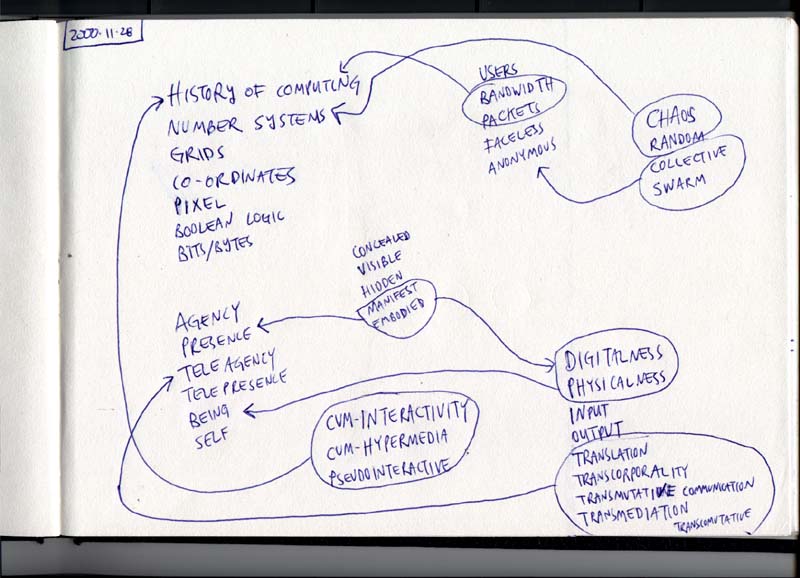 2000-11-28
HISTORY OF COMPUTING
NUMBER SYSTEMS
GRIDS
CO-ORDINATES
PIXEL
BOOLEAN LOGIC
BITS/BYTES
USERS
BANDWIDTH
PACKETS
FACELESS
ANONYMOUS
CHAOS
RANDOM
COLLECTIVE
SWARM
CONCEALED
VISIBLE
HIDDEN
MANIFEST
EMBODIED
AGENCY
PRESENCE
TELE AGENCY
TELE PRESENCE
BEING
SELF
CUM-INTERACTIVITY
CUM-HYPERMEDIA
PSEUDOINTERACTIVE
DIGITALNESS
PHYSICALNESS
INPUT
OUTPUT
TRANSLATION
TRANSCORPORALITY
TRANSMUTATIVE COMMUNICATION
TRANSMEDIATION
TRANSCOMUTATIVE